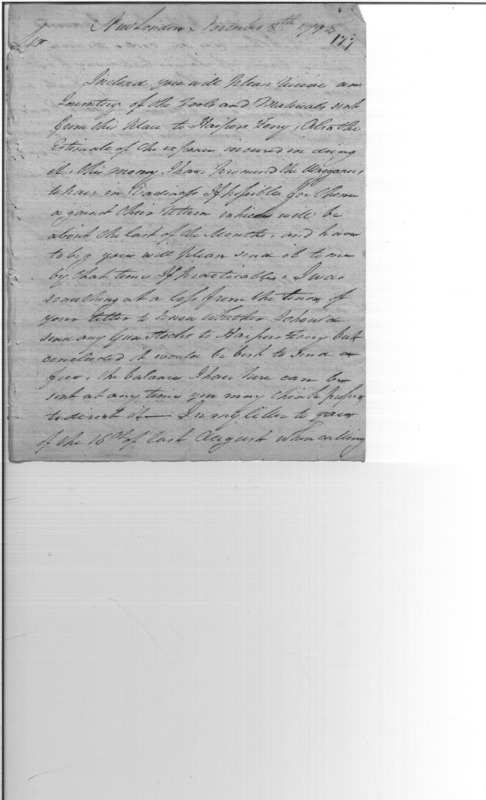 New London November 8th 179
177
Sir
Inclosed you will please receive an
Inventory of the Tools and Materials sent
from this place to Harpers Ferry, Also the
Estimate of the expence incured in doing
it. this money I have promised the Waggoners
to have in readiness If possible for them
against their return which will be
about the last of the Month, and have
to beg you will please send it to me
by that time If practicable. I was
something at a loss from the tenor of
your letter to know Whether I should
send any Gun Stocks to Harpers Ferry but
concluded it would be best to send a
few, the balance I have here can be
sent at any time you may think proper
to direct it — In my letter to you
of the 16th of last August when calling